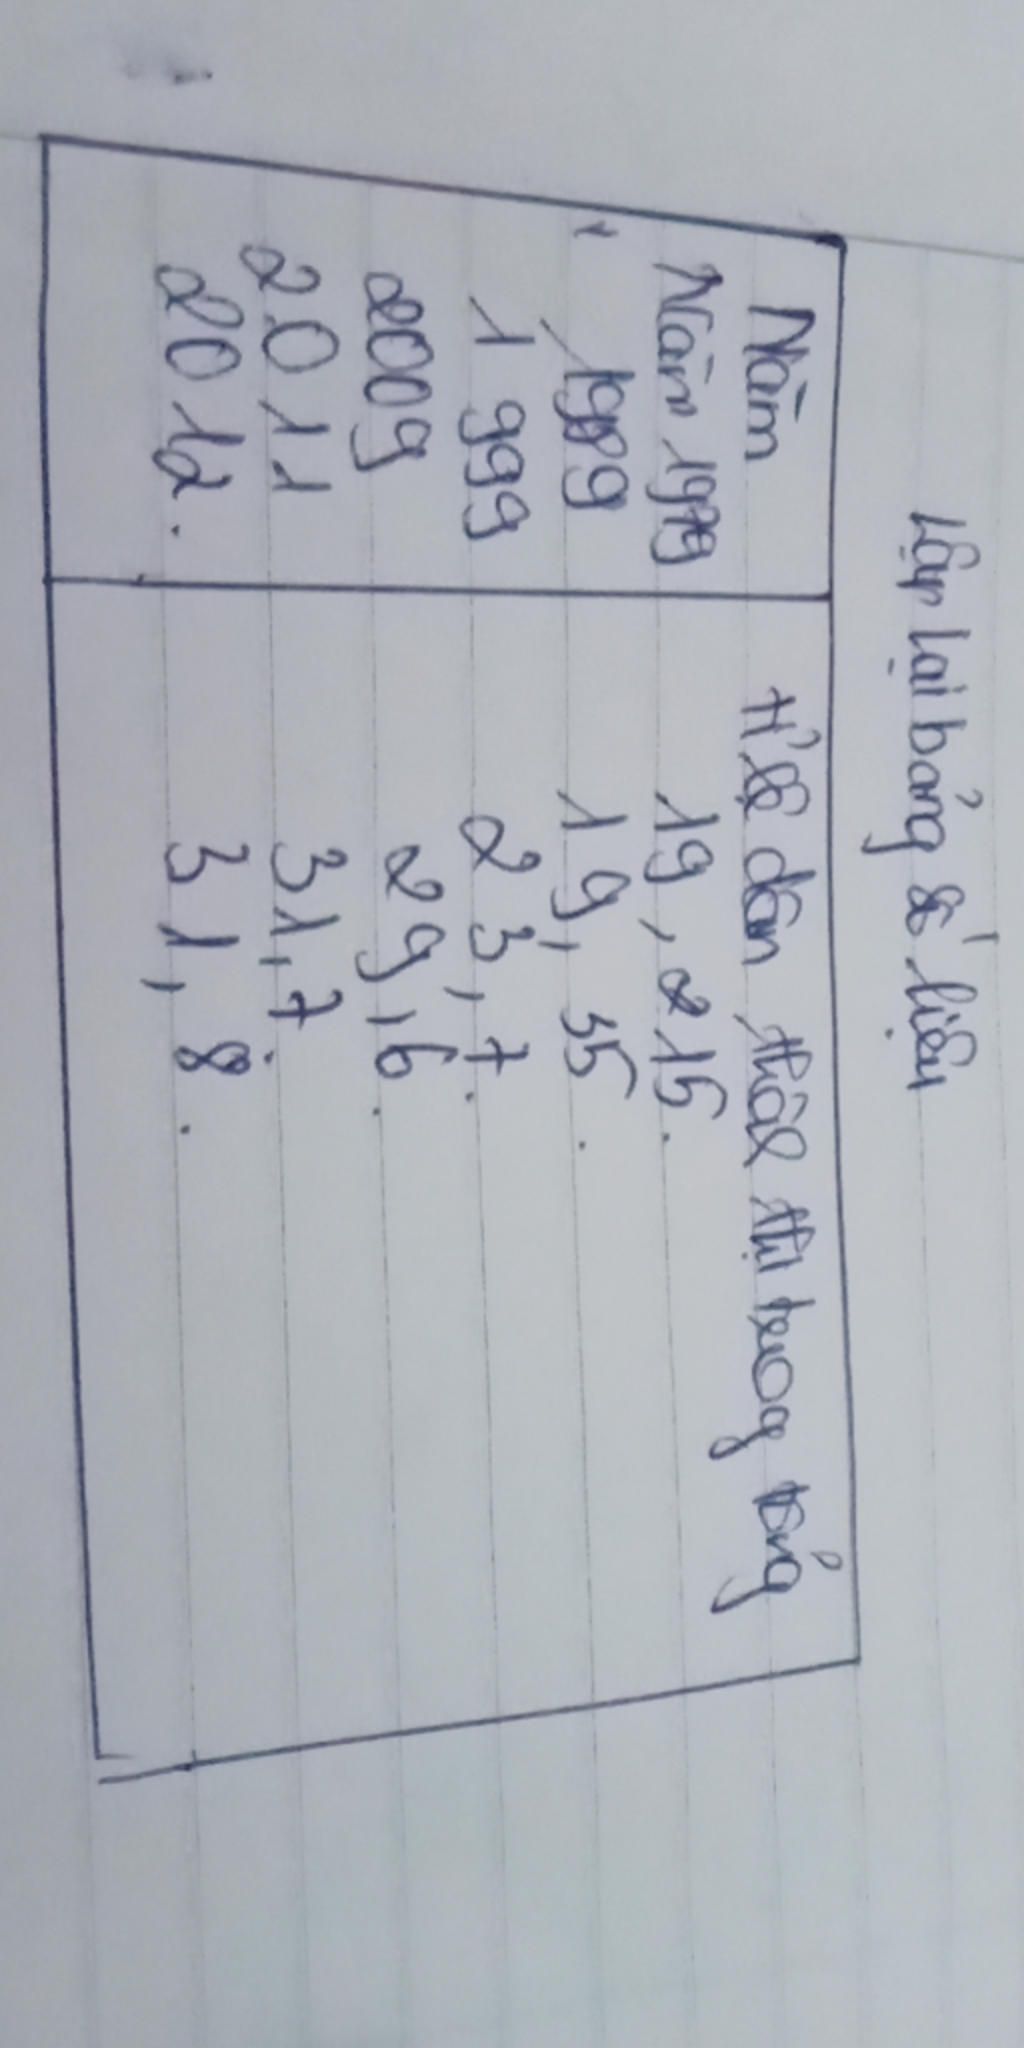 Lập lại bảng số liệu
Năm tỉ lệ dân thành thị trong tổng
Năm 1979 19,215.
1989 19,35.
1999 23,7.
2009 29,6.
2011 31,7.
2012. 31,8.